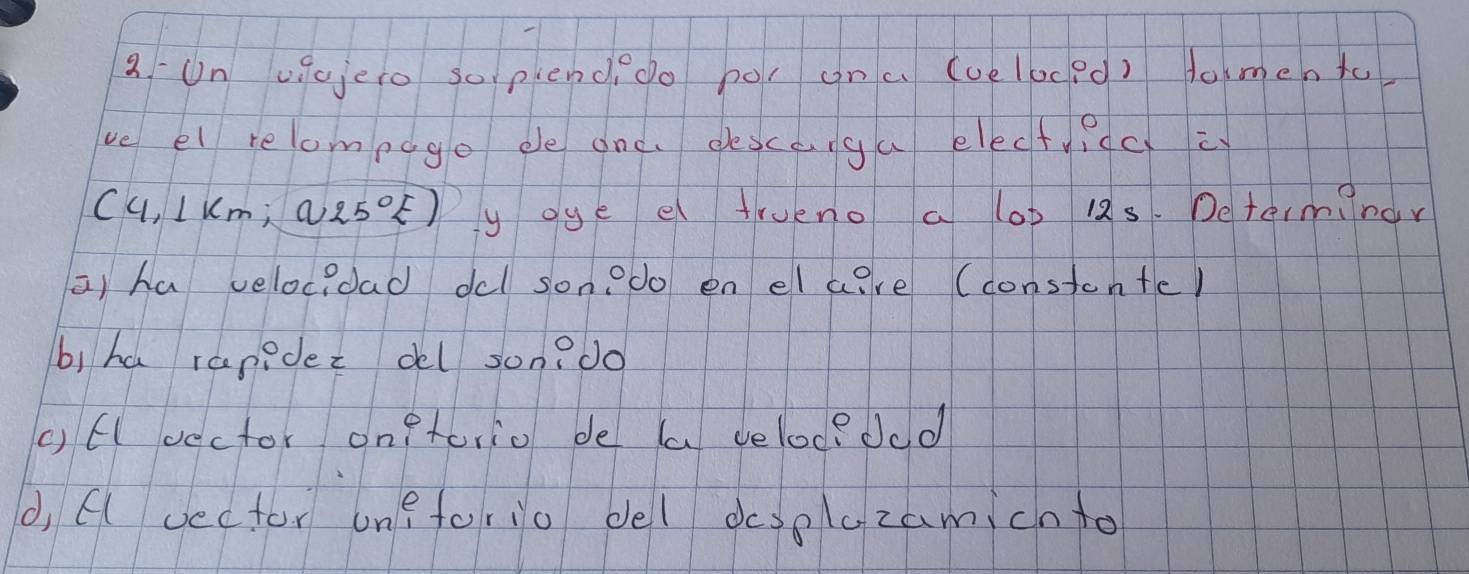 2.- Un viajero sorprendido por una (velocid) tormenta
ve el relampago de una descarga electrica
(4,1 Km; N25°E) y oye el trueno a los 12s. Determinar
a) ha velocidad del sonido en el aire (constante)
b) ha rapidez del sonido
c) El vector unitario de la velocidad
d) El vector unitario del desplazamiento